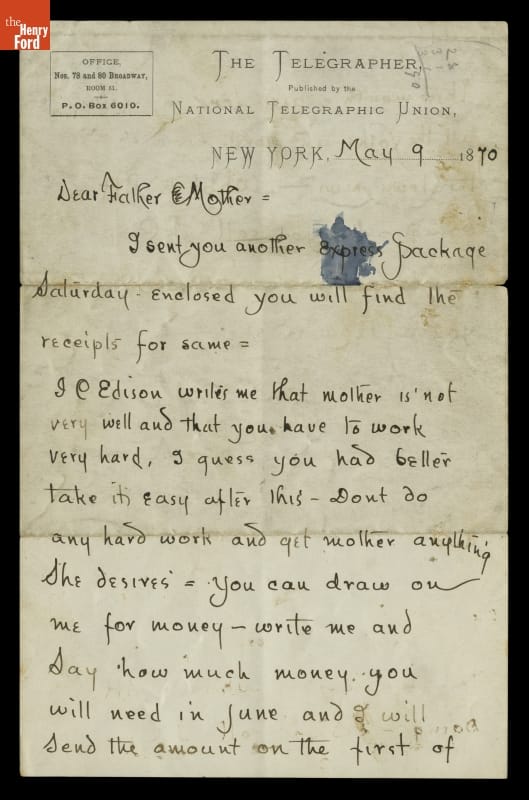 the
Henry
Ford
OFFICE,
Nos. 78 and 80 BROADWAY,
ROOM 51.
P. O. Box 6010.
THE TELEGRAPHER,
Published by the
NATIONAL TELEGRAPHIC UNION,
NEW YORK, May 9 1870
Dear Father & Mother =
I sent you another Express package
Saturday - enclosed you will find the
receipts for same =
I C Edison writes me that mother is not
very well and that you have to work
very hard, I guess you had better
take it easy after this - Dont do
any hard work and get mother anything
She desires = You can draw on
me for money - write me and
Say how much money you
will need in June and I will
Send the amount on the first of